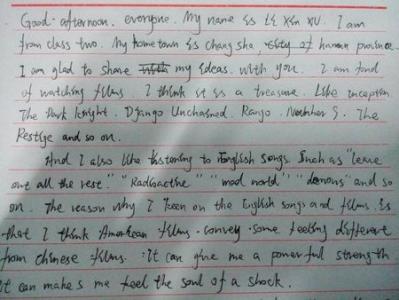 Good afternoon. everyone. My name is Li Xin XU. I am
from class two. My hometown is changsha, city of hunan province.
I am glad to share my ideas. with you. I am fond
of watching films. I think it is a treasure. Like inception
The Dark knight. Django Unchained. Rango. Number 9. The
Restige and so on.
And I also like listening to English songs. Such as "leave
out all the rest." "Radioactive" "mad world" "demons" and so
on. The reason why I keen on the English songs and films. is
that I think American films. convey some feeling different
from chinese films. It can give me a powerful strength
It can makes me feel the soul of a shock.